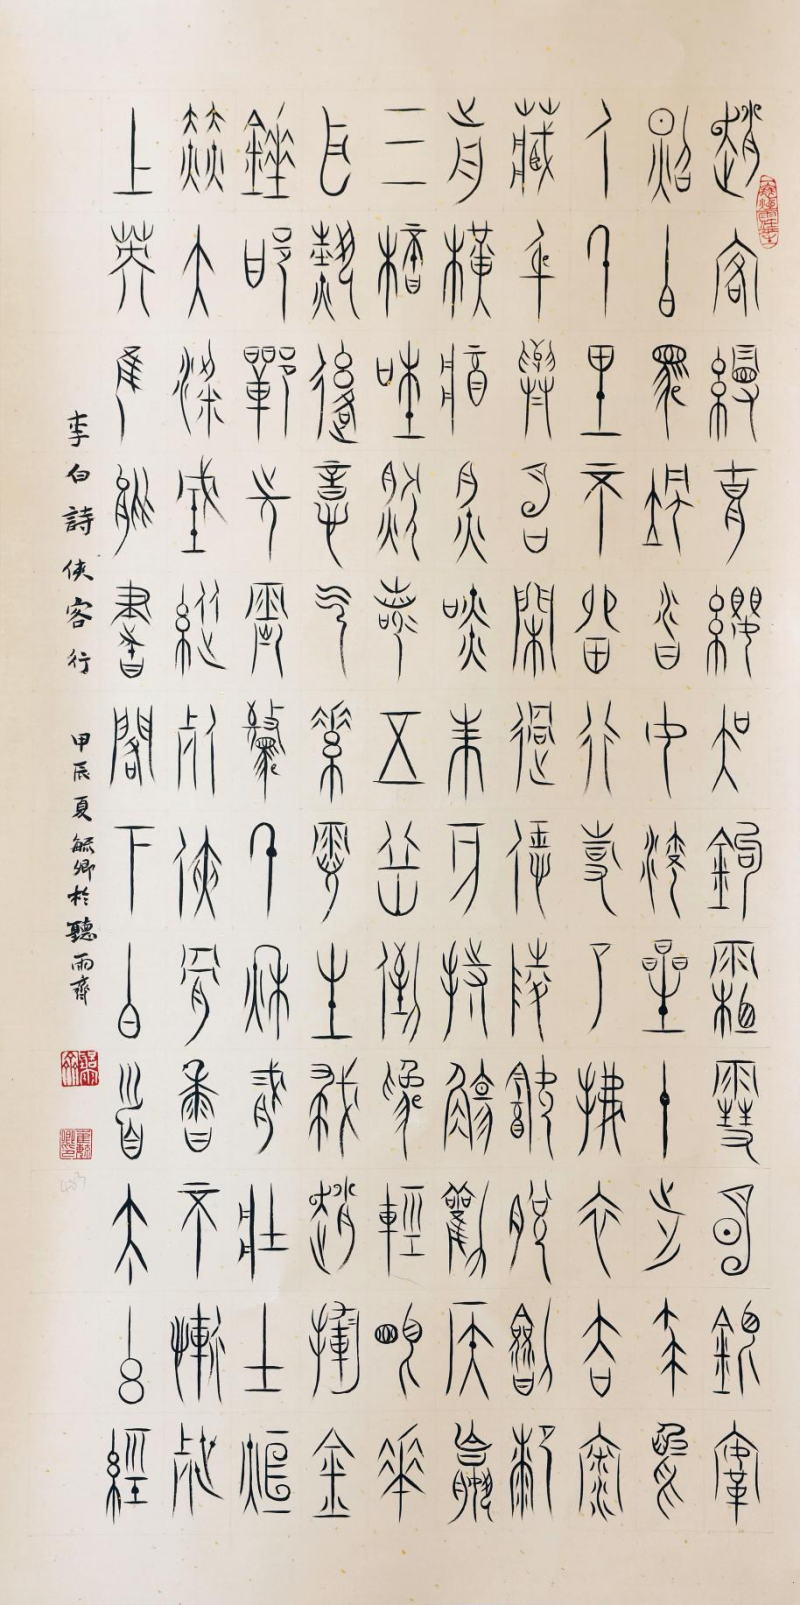 趙客縵胡纓吳鉤霜雪明銀鞍
照白馬颯沓如流星十步殺一
人千里不留行事了拂衣去深
藏身與名閑過信陵飲脫劍膝
前橫將炙啖朱亥持觴勸侯嬴
三杯吐然諾五嶽倒為輕眼花
耳熱後意氣素霓生救趙揮金
錘邯鄲先震驚千秋二壯士烜
赫大梁城縱死俠骨香不慚世
上英誰能書閣下白首太玄經
李白詩俠客行 甲辰夏毓卿於聽雨齋